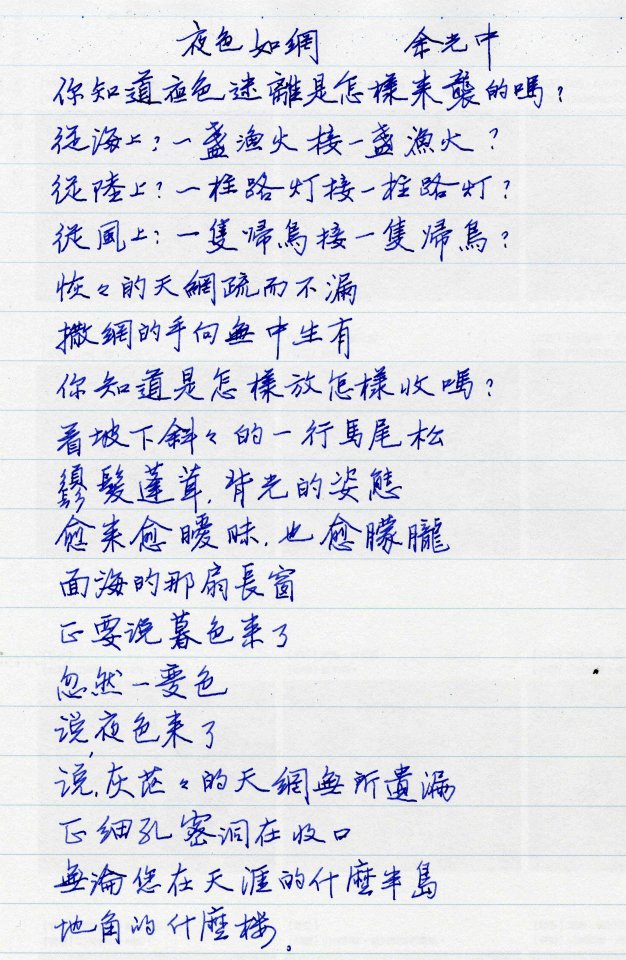 夜色如網 余光中
你知道夜色迷離是怎樣来襲的嗎？
從海上？一盞漁火接一盞漁火？
從陸上？一柱路灯接一柱路灯？
從風上？一隻帰鳥接一隻帰鳥？
恢々的天網疏而不漏
撒網的手向無中生有
你知道是怎樣放怎樣收嗎？
看坡下斜々的一行馬尾松
鬍髮蓬茸，背光的姿態
愈来愈曖昧，也愈朦朧
面海的那扇長窗
正要说暮色来了
忽然一变色
说，夜色来了
说，灰茫々的天網無所遺漏
正細孔密洞在收口
無淪您在天涯的什麼半島
地角的什麼楼。